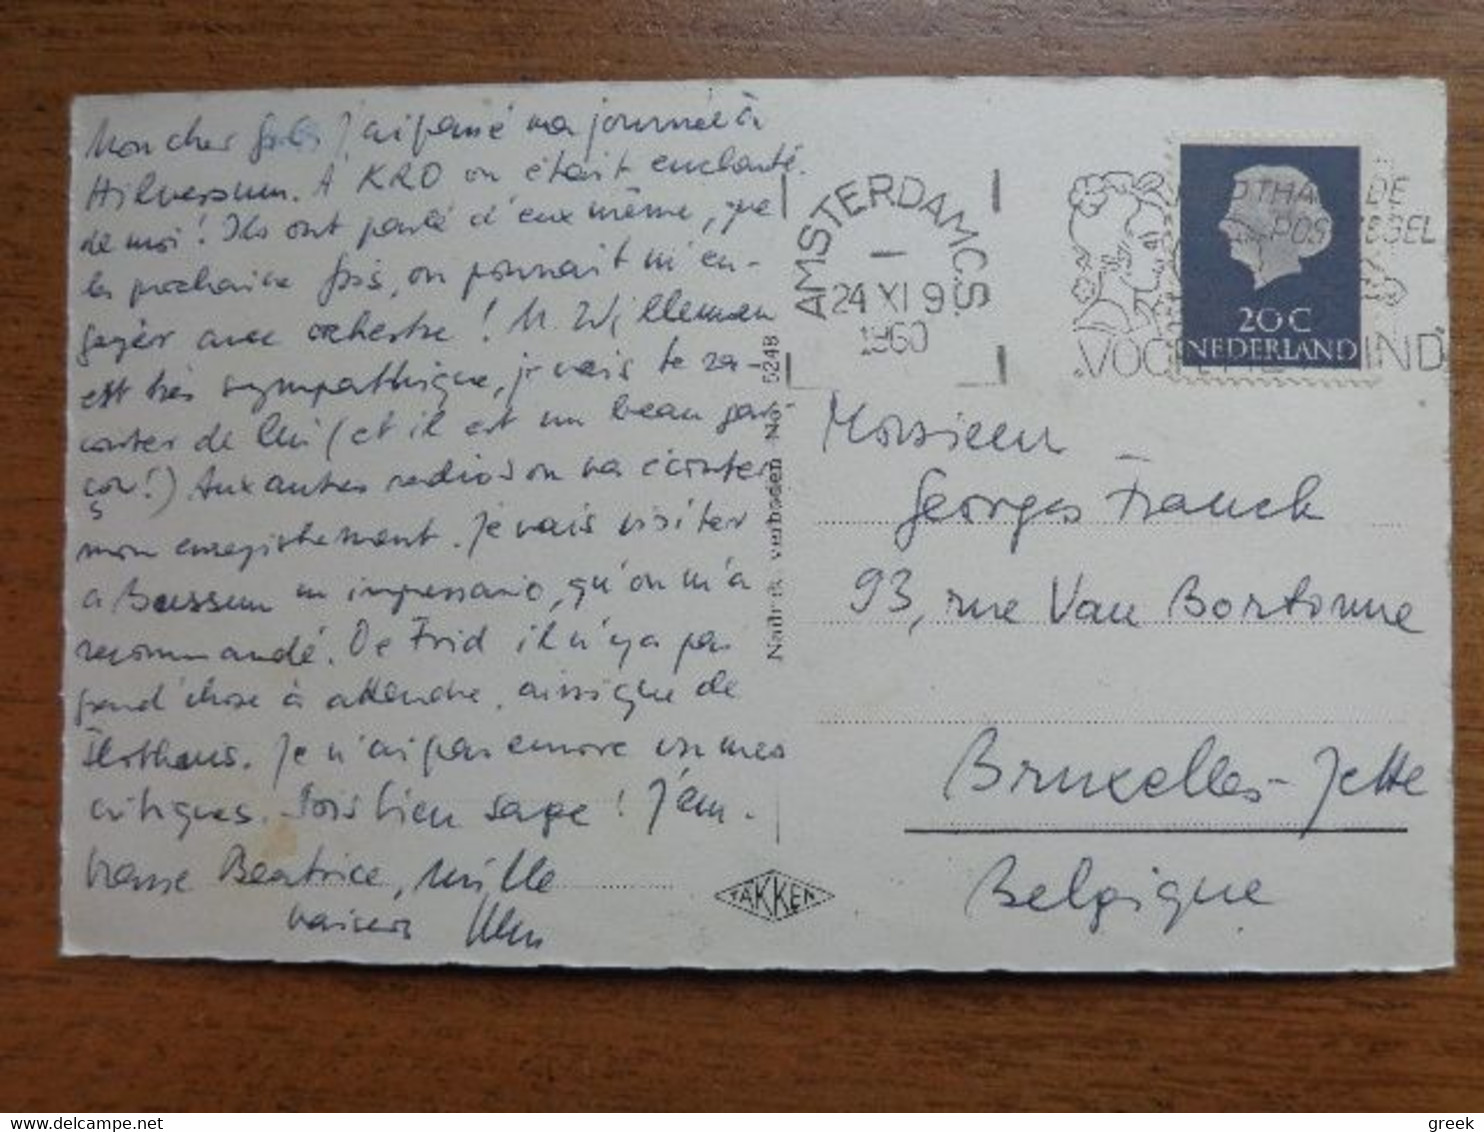 Mon cher j'ai passé ma journée à
Hilversum. A KRO on était enchanté
de moi! Ils ont parlé d'eux même, que
la prochaine fois, on pourrait m'en-
gager avec orchestre! M. Willeman
est très sympathique, je vais te ra-
conter de lui (et il est un beau gar-
çon!) Aux autres radios on va écouter
mon enregistrement. Je vais visiter
a Bussum un impressario, qu'on m'a
recommandé. De Frid il n'y a pas
grand'chose à attendre, ainsi que de
Flothuis. Je n'ai pas encore vu mes
critiques. Sois bien sage! J'em-
brasse Beatrice, mille
baisers
Nadruk verboden No 5248
TAKKEN
AMSTERDAM C.S.
24 XI 9
1960
POSTZEGEL
VOOR HET KIND
20C
NEDERLAND
Monsieur
Georges Franck
93, rue Van Bortonne
Bruxelles-Jette
Belgique
greek